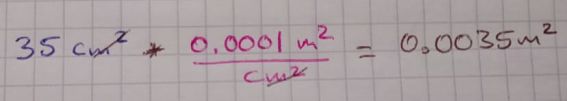 35 cm² * 0.0001 m²/cm² = 0.0035 m²